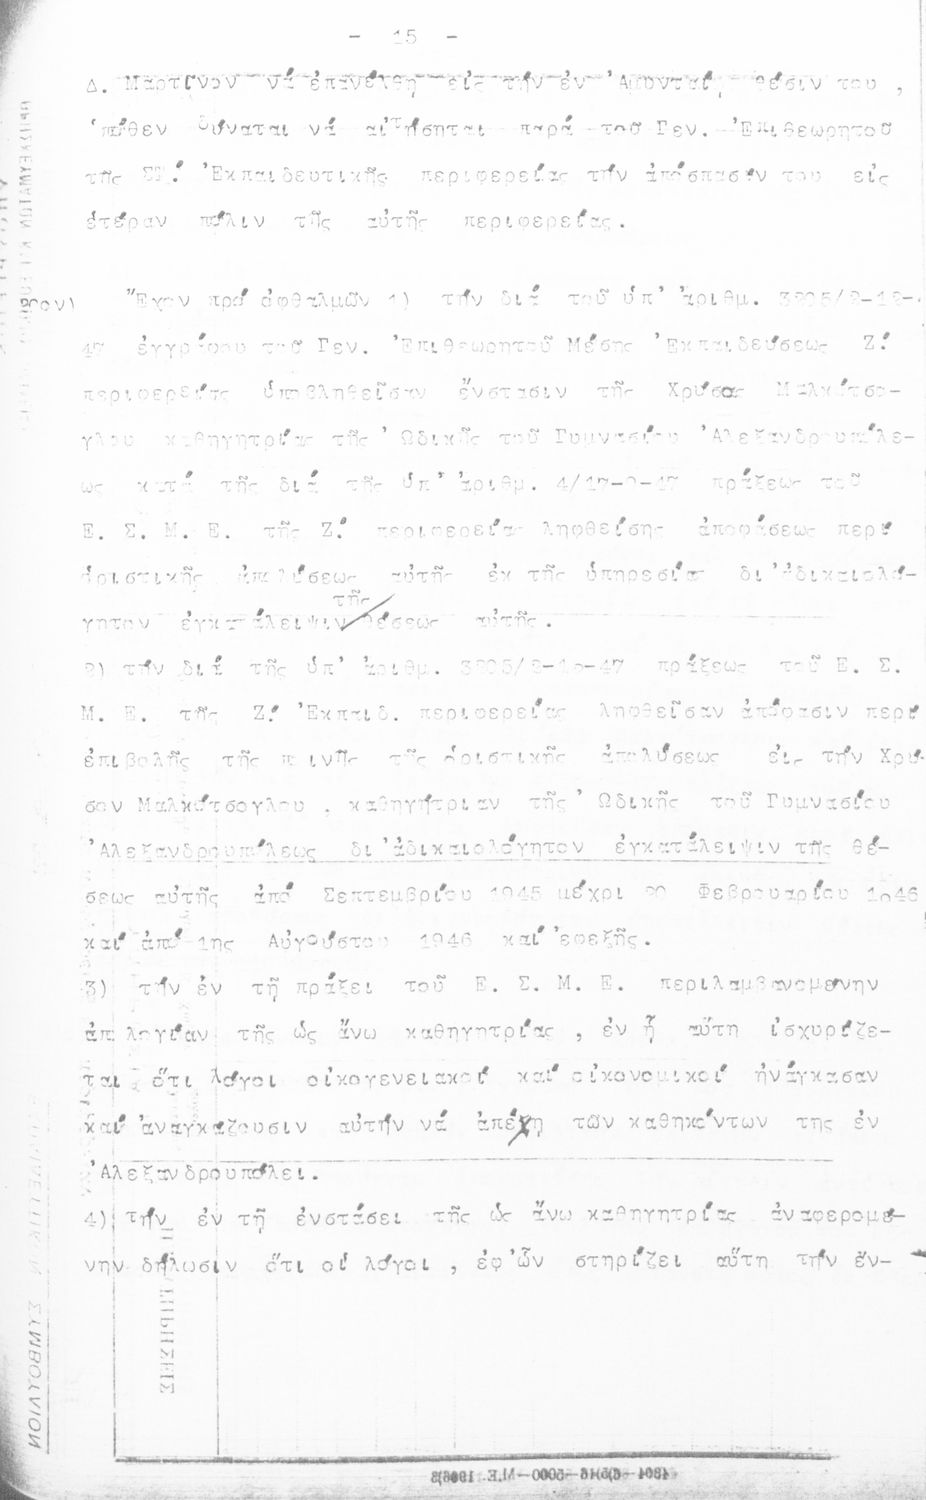 - 15 -
Δ. Μαρτῖνον νά ἐπανέλθῃ εἰς τήν ἐν Ἀμυνταί, θέσιν του ,
ὁπόθεν δύναται νά αἰτήσηται παρά τοῦ Γεν. Ἐπιθεωρητοῦ
τῆς ΣΤ΄. Ἐκπαιδευτικῆς περιφερείας τήν ἀπόσπασίν του εἰς
ἑτέραν πόλιν τῆς αὐτῆς περιφερείας.
βον) Ἔχον πρό ὀφθαλμῶν 1) τήν διά τοῦ ὑπ' ἀριθμ. 3205/2-12-
47 ἐγγράφου τοῦ Γεν. Ἐπιθεωρητοῦ Μέσης Ἐκπαιδεύσεως Ζ΄.
περιφερείας ὑποβληθεῖσαν ἔνστασιν τῆς Χρύσας Μαλκότσο-
γλου καθηγητρίας τῆς Ὠδικῆς τοῦ Γυμνασίου Ἀλεξανδρουπόλε-
ως κατά τῆς διά τῆς ὑπ' ἀριθμ. 4/17-9-47 πράξεως τοῦ
Ε. Σ. Μ. Ε. τῆς Ζ΄. περιφερείας ληφθείσης ἀποφάσεως περί
ὁριστικῆς ἀπολύσεως αὐτῆς ἐκ τῆς ὑπηρεσίας δι' ἀδικαιολό-
γητον ἐγκατάλειψιν τῆς θέσεως αὐτῆς.
2) τήν διά τῆς ὑπ' ἀριθμ. 3205/2-12-47 πράξεως τοῦ Ε. Σ.
Μ. Ε. τῆς Ζ΄. Ἐκπαιδ. περιφερείας ληφθεῖσαν ἀπόφασιν περί
ἐπιβολῆς τῆς ποινῆς τῆς ὁριστικῆς ἀπολύσεως εἰς τήν Χρύ-
σαν Μαλκότσογλου , καθηγήτριαν τῆς Ὠδικῆς τοῦ Γυμνασίου
Ἀλεξανδρουπόλεως δι' ἀδικαιολόγητον ἐγκατάλειψιν τῆς θέ-
σεως αὐτῆς ἀπό Σεπτεμβρίου 1945 μέχρι 20 Φεβρουαρίου 1946
καί ἀπό 1ης Αὐγούστου 1946 καί ἐφεξῆς.
3) τήν ἐν τῇ πράξει τοῦ Ε. Σ. Μ. Ε. περιλαμβανομένην
ἀπολογίαν τῆς ὡς ἄνω καθηγητρίας , ἐν ᾗ αὕτη ἰσχυρίζε-
ται ὅτι λόγοι οἰκογενειακοί καί οἰκονομικοί ἠνάγκασαν
καί ἀναγκάζουσιν αὐτήν νά ἀπέχῃ τῶν καθηκόντων της ἐν
Ἀλεξανδρουπόλει.
4) τήν ἐν τῇ ἐνστάσει τῆς ὡς ἄνω καθηγητρίας ἀναφερομέ-
νην δήλωσιν ὅτι οἱ λόγοι , ἐφ' ὧν στηρίζει αὕτη τήν ἔν-
ΣΥΜΒΟΥΛΙΟΝ